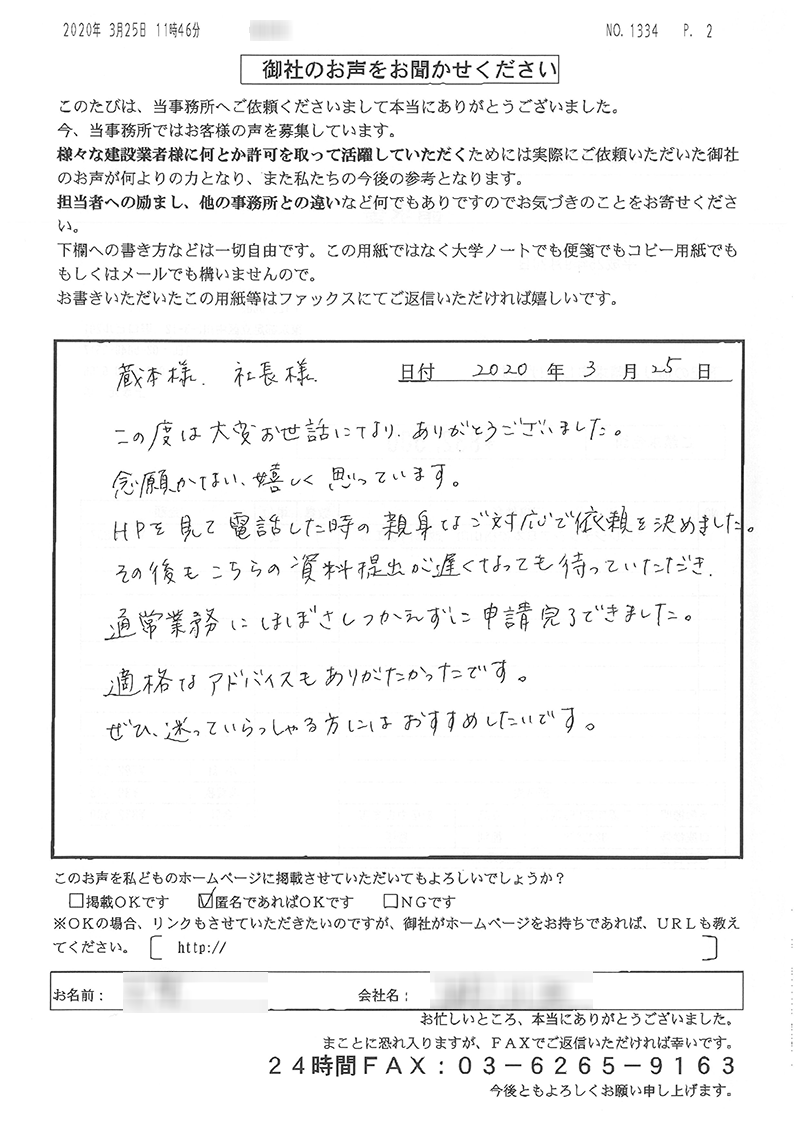 2020年 3月25日 11時46分
NO. 1334 P. 2
御社のお声をお聞かせください
このたびは、当事務所へご依頼くださいまして本当にありがとうございました。
今、当事務所ではお客様の声を募集しています。
様々な建設業者様に何とか許可を取って活躍していただくためには実際にご依頼いただいた御社
のお声が何よりの力となり、また私たちの今後の参考となります。
担当者への励まし、他の事務所との違いなど何でもありですのでお気づきのことをお寄せくださ
い。
下欄への書き方などは一切自由です。この用紙ではなく大学ノートでも便箋でもコピー用紙でも
もしくはメールでも構いませんので。
お書きいただいたこの用紙等はファックスにてご返信いただければ嬉しいです。
蔵本様. 社長様.
日付 2020 年 3 月 25 日
この度は大変お世話になり、ありがとうございました。
念願かない、嬉しく思っています。
HPを見て電話した時の親身なご対応で依頼を決めました。
その後もこちらの資料提出が遅くなっても待っていただき、
通常業務にほぼさしつかえずに申請完了できました。
適格なアドバイスもありがたかったです。
ぜひ、迷っていらっしゃる方にはおすすめしたいです。
このお声を私どものホームページに掲載させていただいてもよろしいでしょうか？
□掲載OKです ☑匿名であればOKです □NGです
※OKの場合、リンクもさせていただきたいのですが、御社がホームページをお持ちであれば、URLも教え
てください。 [ http:// ]
お名前： 会社名：
お忙しいところ、本当にありがとうございました。
まことに恐れ入りますが、FAXでご返信いただければ幸いです。
24時間FAX：03－6265－9163
今後ともよろしくお願い申し上げます。